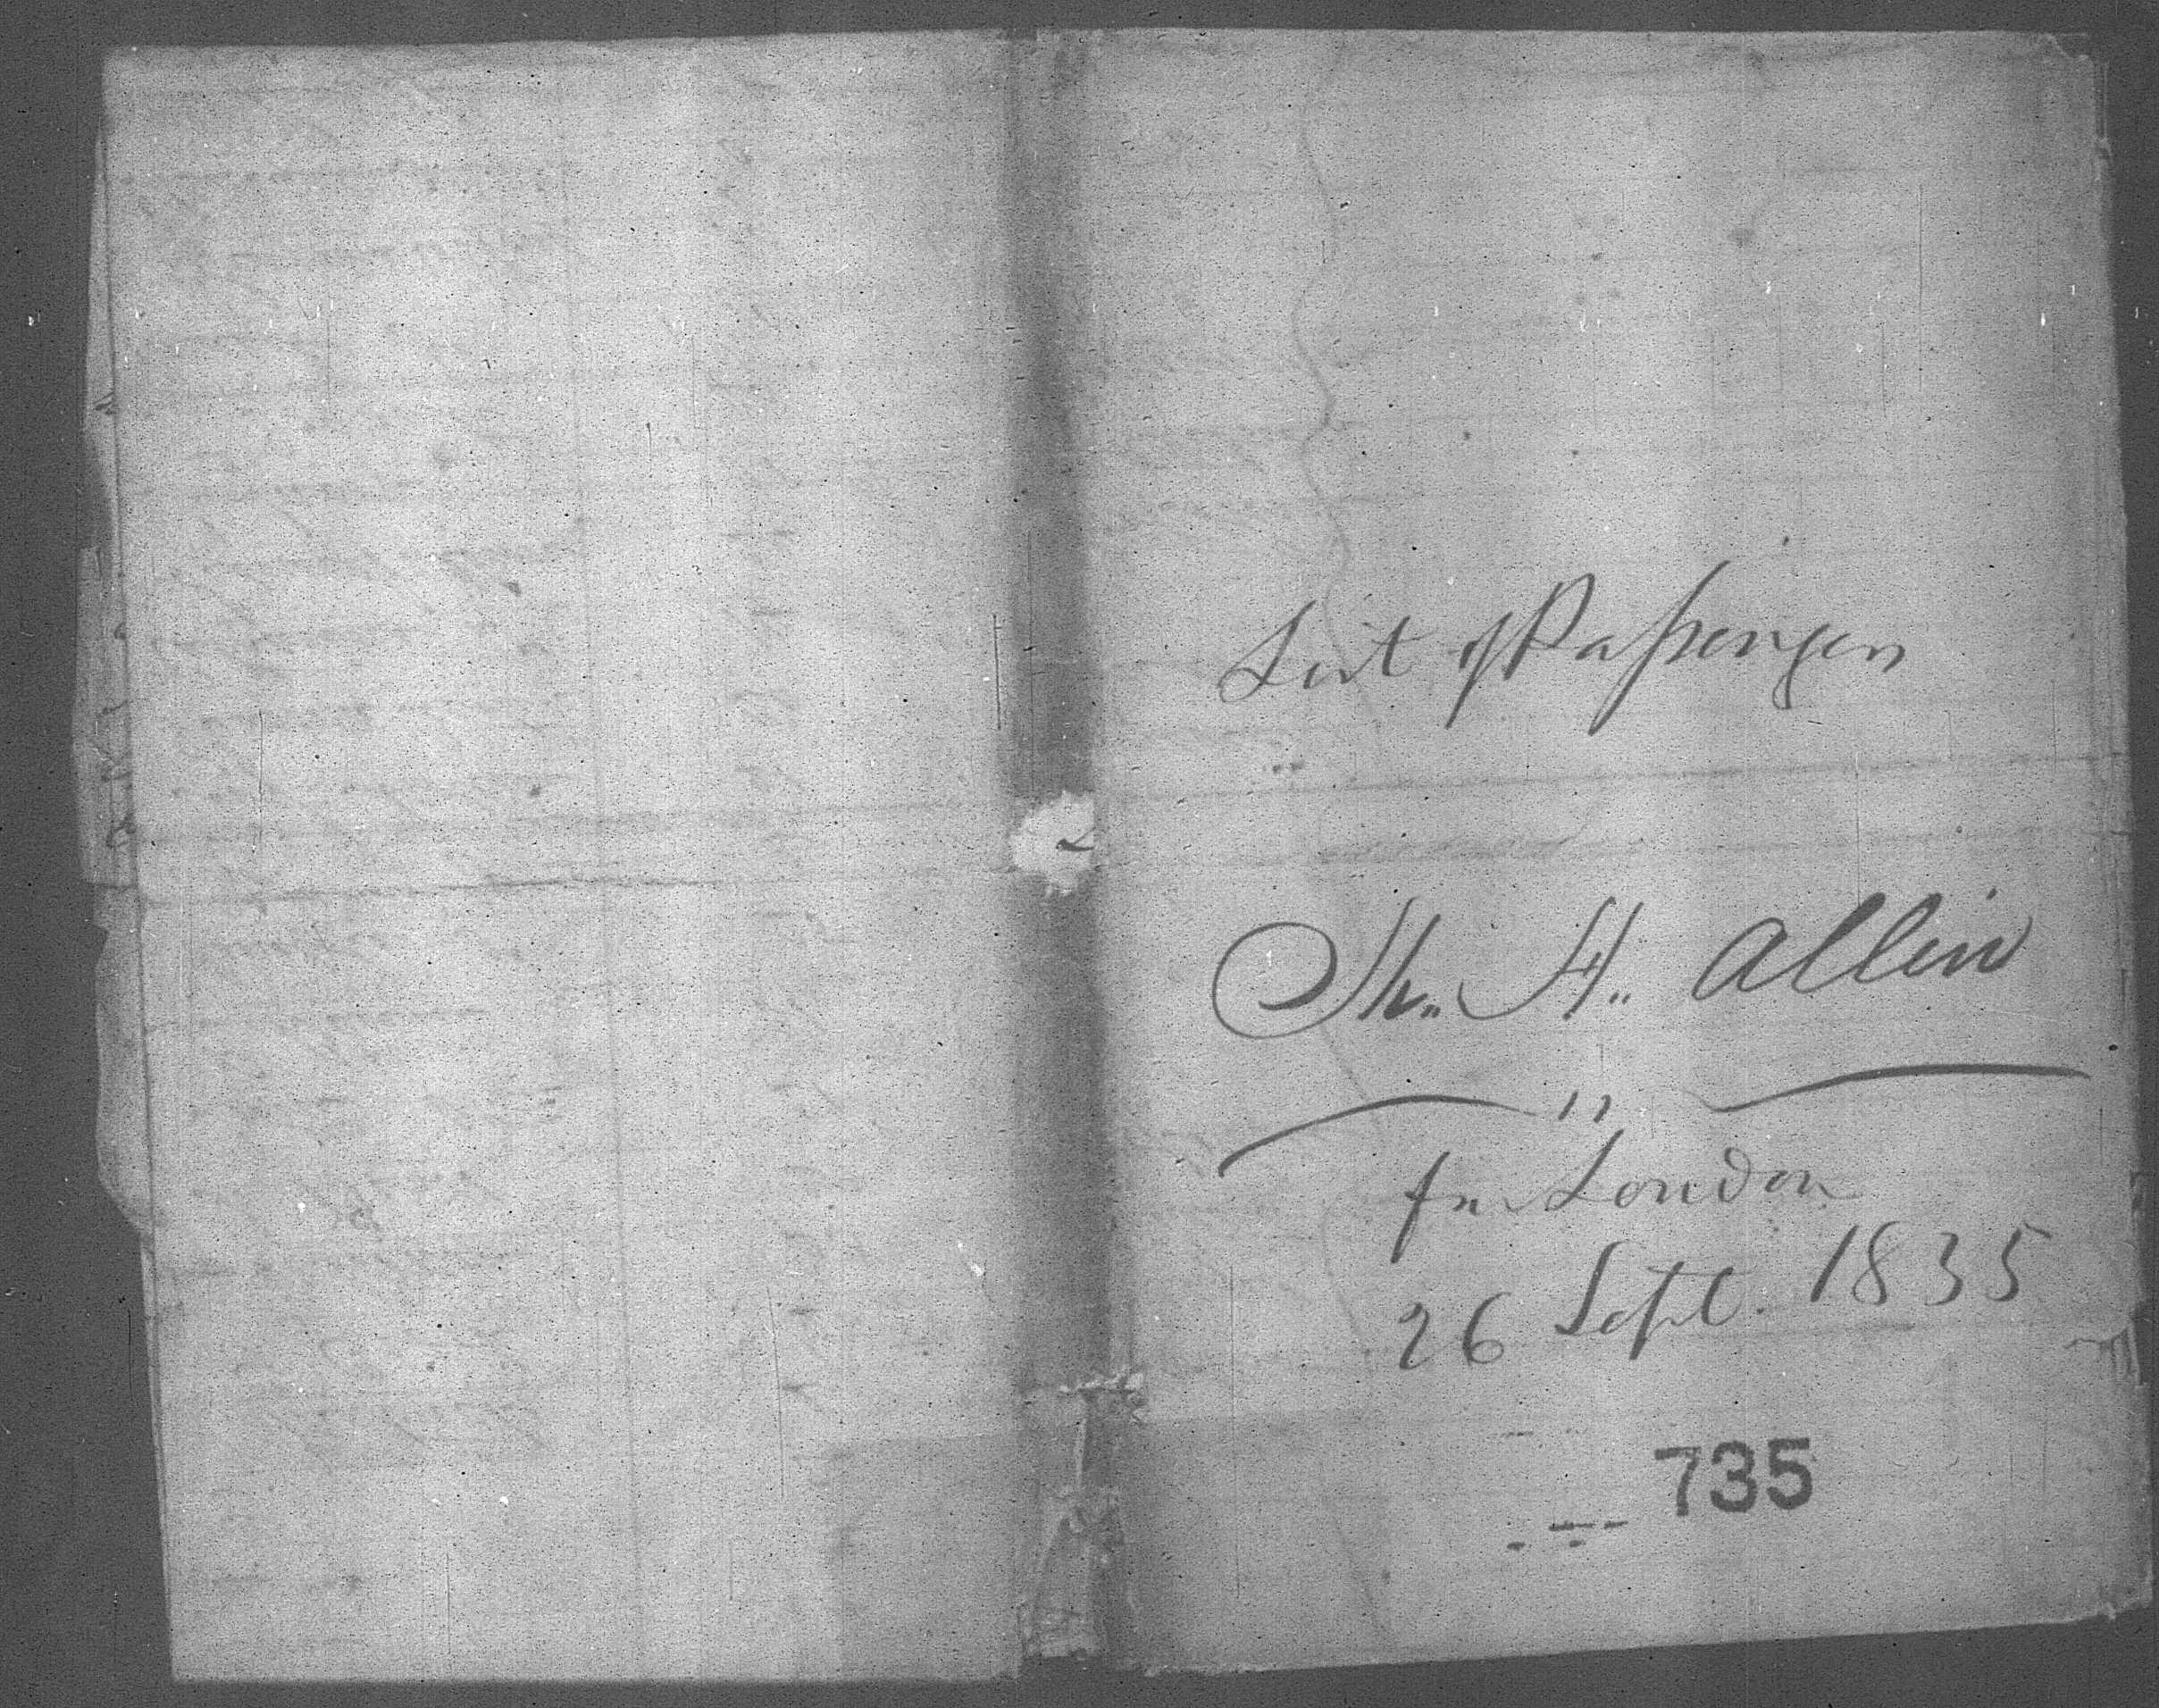 List of Passengers
Sh,, H,, Allen
fm London
26 Sept. 1835
735